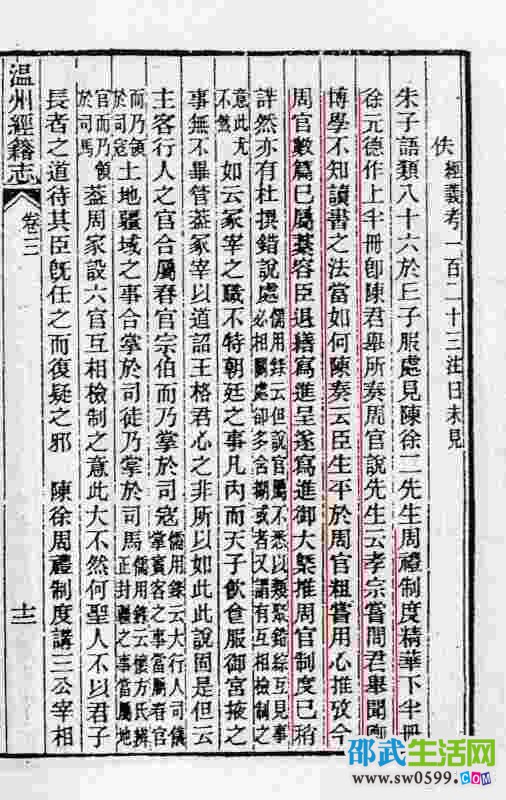 佚 經義考一百二十三注曰未見
朱子語類八十六於丘子服處見陳徐二先生周禮制度精華下半冊
徐元德作上半冊卽陳君舉所奏周官說先生云孝宗嘗問君舉聞卿
博學不知讀書之法當如何陳奏云臣生平於周官粗嘗用心推攷今
周官數篇已屬藁容臣退繕寫進呈遂寫進御大槩推周官制度已稍
詳然亦有杜撰錯說處儒用錄云但說官屬不悉以類聚錯綜互見事必相關處卻多含糊或者又謂有互相檢制之
意此尤不然如云冢宰之職不特朝廷之事凡內而天子飮食服御宮掖之
事無不畢管葢冢宰以道詔王格君心之非所以如此此說固是但云
主客行人之官合屬春官宗伯而乃掌於司寇儒用錄云大行人司儀掌賓客之事當屬春官
而乃領於司寇土地疆域之事合掌於司徒乃掌於司馬儒用錄云懷方氏揮正封疆之事當屬地
官而乃領於司馬葢周家設六官互相檢制之意此大不然何聖人不以君子
長者之道待其臣旣任之而復疑之邪 陳徐周禮制度講三公宰相
温州經籍志 卷三 十二
邵武生活网
www.sw0599.COM